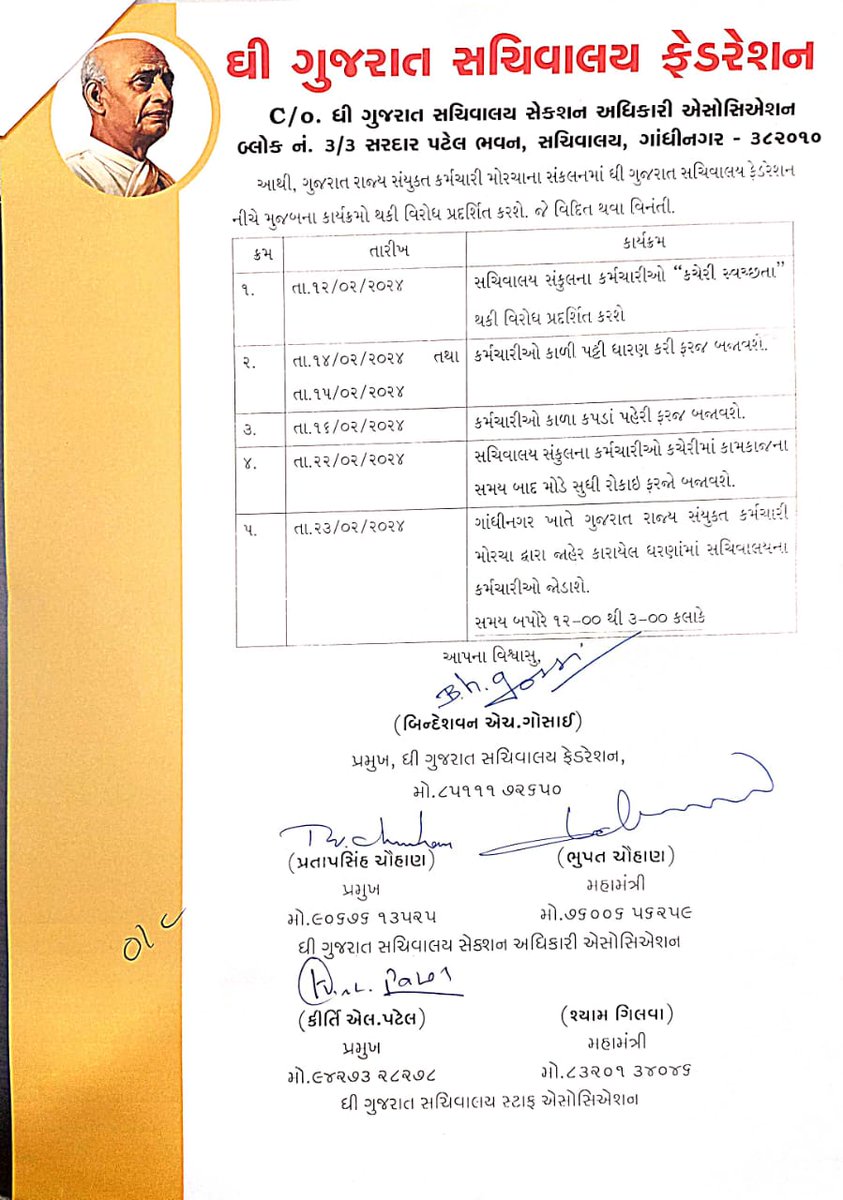 ઘી ગુજરાત સચિવાલય ફેડરેશન
C/o. ઘી ગુજરાત સચિવાલય સેકશન અધિકારી એસોસિએશન
બ્લોક નં. ૩/૩ સરદાર પટેલ ભવન, સચિવાલય, ગાંધીનગર - ૩૮૨૦૧૦
આથી, ગુજરાત રાજ્ય સંયુકત કર્મચારી મોરચાના સંકલનમાં ઘી ગુજરાત સચિવાલય ફેડરેશન
નીચે મુજબના કાર્યક્રમો થકી વિરોધ પ્રદર્શિત કરશે. જે વિદિત થવા વિનંતી.
ક્રમ તારીખ કાર્યક્રમ
૧. તા.૧૨/૦૨/૨૦૨૪ સચિવાલય સંકુલના કર્મચારીઓ “કચેરી સ્વચ્છતા”
થકી વિરોધ પ્રદર્શિત કરશે
૨. તા.૧૪/૦૨/૨૦૨૪ તથા કર્મચારીઓ કાળી પટ્ટી ધારણ કરી ફરજ બજાવશે.
તા.૧૫/૦૨/૨૦૨૪
૩. તા.૧૬/૦૨/૨૦૨૪ કર્મચારીઓ કાળા કપડાં પહેરી ફરજ બજાવશે.
૪. તા.૨૨/૦૨/૨૦૨૪ સચિવાલય સંકુલના કર્મચારીઓ કચેરીમાં કામકાજના
સમય બાદ મોડે સુધી રોકાઇ ફરજો બજાવશે.
૫. તા.૨૩/૦૨/૨૦૨૪ ગાંધીનગર ખાતે ગુજરાત રાજ્ય સંયુકત કર્મચારી
મોરચા દ્વારા જાહેર કારાયેલ ધરણાંમાં સચિવાલયના
કર્મચારીઓ જોડાશે.
સમય બપોરે ૧૨–૦૦ થી ૩–૦૦ કલાકે
આપના વિશ્વાસુ,
(બિન્દેશવન એચ.ગોસાઈ)
પ્રમુખ, ઘી ગુજરાત સચિવાલય ફેડરેશન,
મો.૮૫૧૧૧ ૭૨૬૫૦
(પ્રતાપસિંહ ચૌહાણ) (ભુપત ચૌહાણ)
પ્રમુખ મહામંત્રી
મો.૯૦૬૭૬ ૧૩૫૨૫ મો.૭૬૦૦૬ ૫૬૨૫૯
ઘી ગુજરાત સચિવાલય સેકશન અધિકારી એસોસિએશન
(કીર્તિ એલ.પટેલ) (શ્યામ ગિલવા)
પ્રમુખ મહામંત્રી
મો.૯૪૨૭૩ ૨૮૨૭૮ મો.૮૩૨૦૧ ૩૪૦૪૬
ઘી ગુજરાત સચિવાલય સ્ટાફ એસોસિએશન